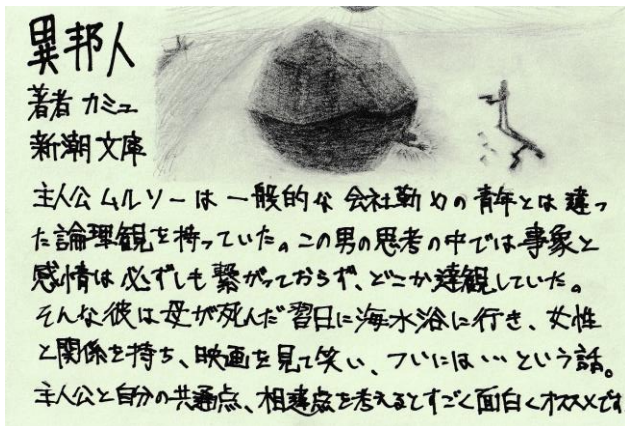 異邦人
著者 カミュ
新潮文庫
主人公ムルソーは一般的な会社勤めの青年とは違っ
た論理観を持っていた。この男の思考の中では事象と
感情は必ずしも繋がっておらず、どこか達観していた。
そんな彼は母が死んだ翌日に海水浴に行き、女性
と関係を持ち、映画を見て笑い、ついには…という話。
主人公と自分の共通点、相違点を考えるとすごく面白くオススメです